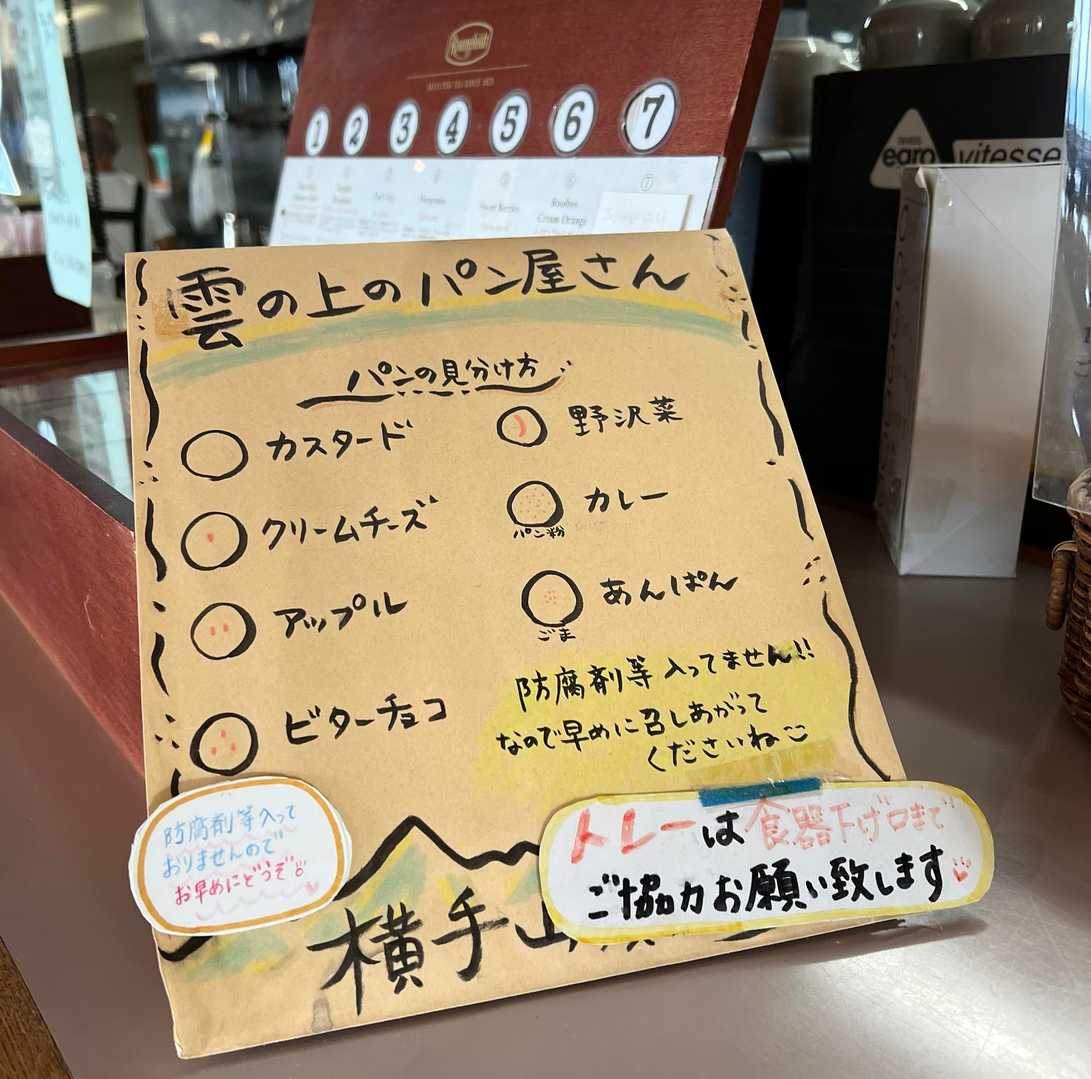 Ronnefeldt
1 2 3 4 5 6 7
Sweet Berries
Rooibos
Cream Orange
egro
vitesse
雲の上のパン屋さん
パンの見分け方
カスタード
クリームチーズ
アップル
ビターチョコ
野沢菜
カレー
パン粉
あんぱん
ごま
防腐剤等入ってません!!
なので早めに召しあがって
くださいね
防腐剤等入って
おりませんので
お早めにどうぞ
トレーは食器下げ口まで
ご協力お願い致します
横手山